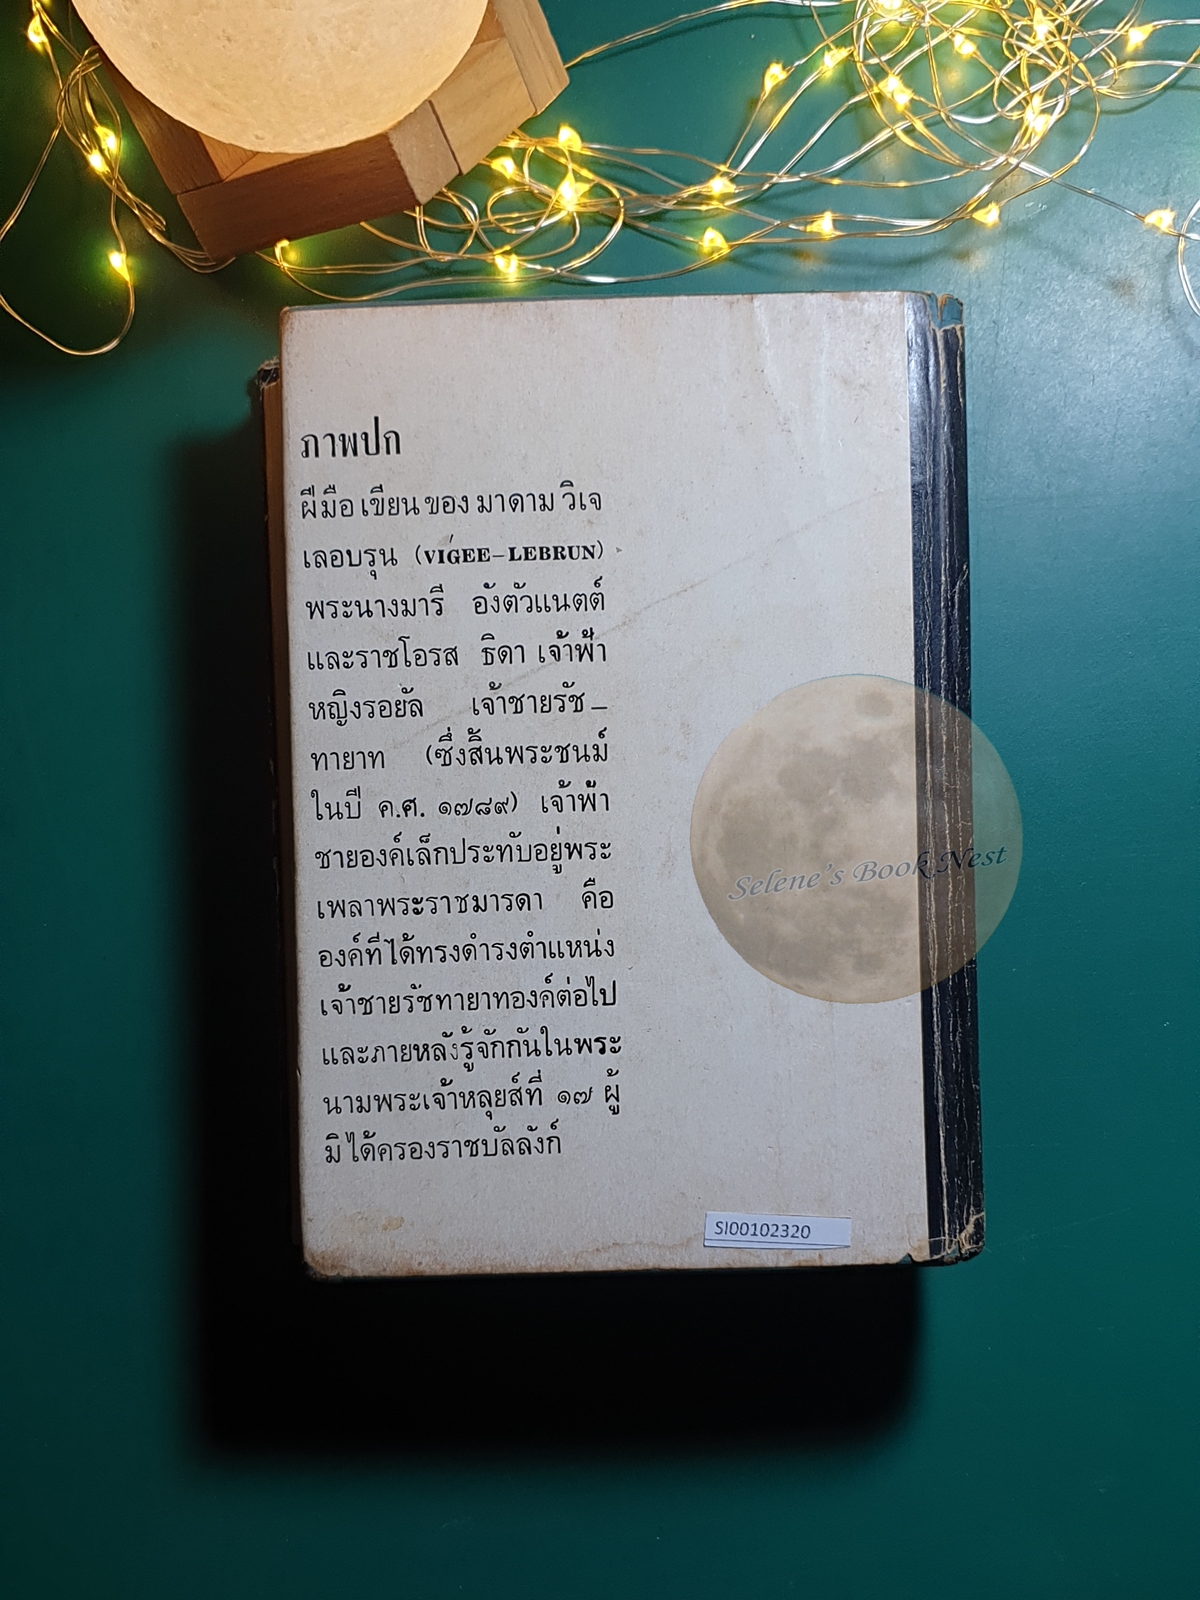 ภาพปก
ฝีมือเขียนของ มาดาม วิเจ
เลอบรุน (VIGÉE-LEBRUN)
พระนางมารี อังตัวแนตต์
และราชโอรส ธิดา เจ้าฟ้า
หญิงรอยัล เจ้าชายรัช-
ทายาท (ซึ่งสิ้นพระชนม์
ในปี ค.ศ. ๑๗๘๙) เจ้าฟ้า
ชายองค์เล็กประทับอยู่พระ
เพลาพระราชมารดา คือ
องค์ที่ได้ทรงดำรงตำแหน่ง
เจ้าชายรัชทายาทองค์ต่อไป
และภายหลังรู้จักกันในพระ
นามพระเจ้าหลุยส์ที่ ๑๗ ผู้
มิได้ครองราชบัลลังก์
Selene's Book Nest
SI00102320